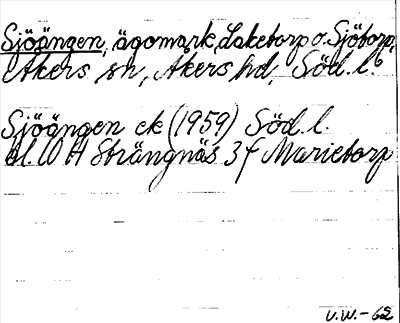 Sjöängen, ägomark, Laketorp o. Sjötorp,
Åkers sn, Åkers hd, Söd. l.
Sjöängen ek (1959) Söd. l.
bl. 10 H Strängnäs 3 f Marietorp
V.W.-62